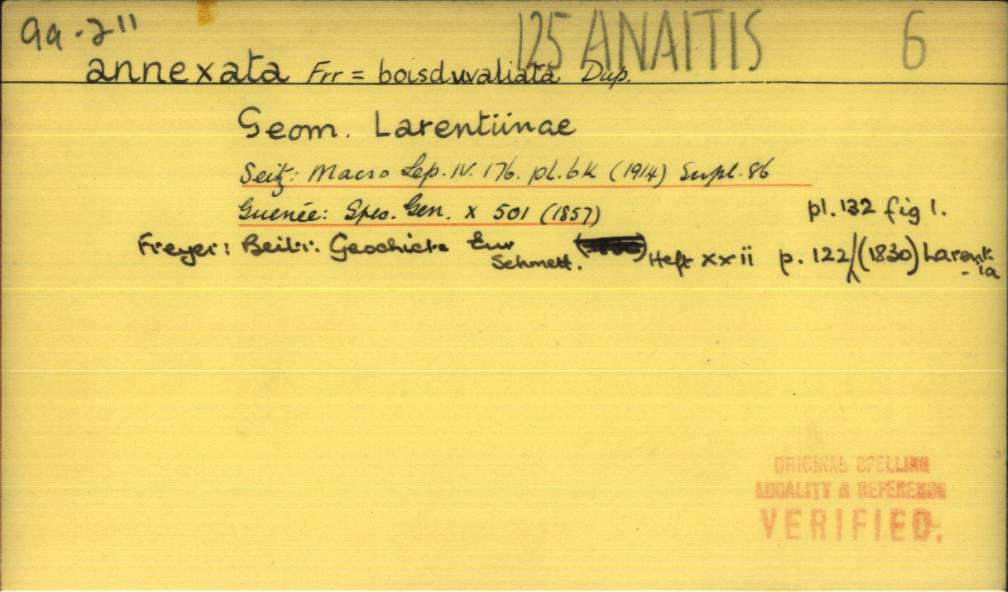 9a - 2"
125 ANAITIS 6
annexata Frr = boisduvaliata Dup.
Geom. Larentiinae
Seitz: Macro Lep. IV. 176. pl. 6k (1914) Supl. 86
Guenée: Spec. Gen. X 501 (1857)
pl. 132 fig 1.
Freyer: Beitr. Geschichte Eur Schmett. Heft xxii p. 122 (1830) Larent-
ia
ORIGINAL SPELLING
LOCALITY & REFERENCE
VERIFIED.